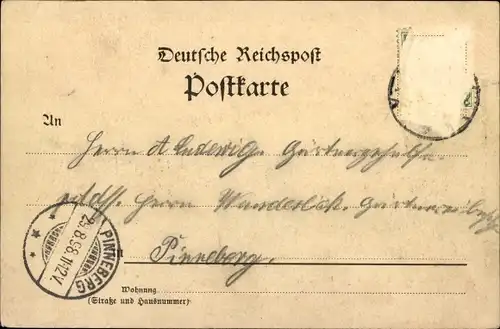 Deutsche Reichspost
Postkarte
An
Herrn A Ludewig. Gärtnergehülfe
Herrn Wunderlich. Gärtnereibes
Pinneberg.
PINNEBERG
.8.98.11-12V.
Wohnung
(Straße und Hausnummer)